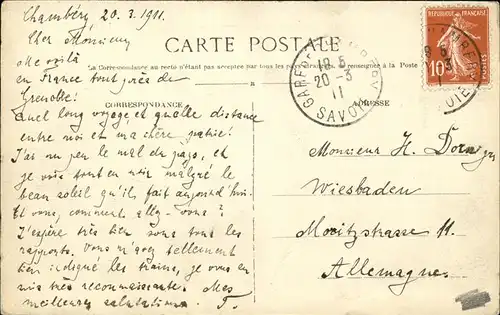 Chambéry 20.3.1911.
Cher Monsieur
Me voilà
en France tout près de
Grenoble!
Quel long voyage et quelle distance
entre moi et ma chère patrie!
J'ai un peu le mal du pays, et
je vois tout en noir malgré le
beau soleil qu'il fait aujourd'hui.
Et vous, comment allez-vous?
J'espère très bien sous tous les
rapports. Vous m'avez tellement
bien indiqué les trains, je vous en
suis très reconnaissante. Mes
meilleures salutations F.
CARTE POSTALE
La Correspondance au recto n'est pas acceptée par tous les pays étrangers. Se renseigner à la Poste
CORRESPONDANCE
ADRESSE
GARE DE CHAMBÉRY
18 5
20-3
11
SAVOIE
RÉPUBLIQUE FRANÇAISE
10
POSTES
Monsieur H. Dorn
Wiesbaden
Moritzstrasse 11
Allemagne